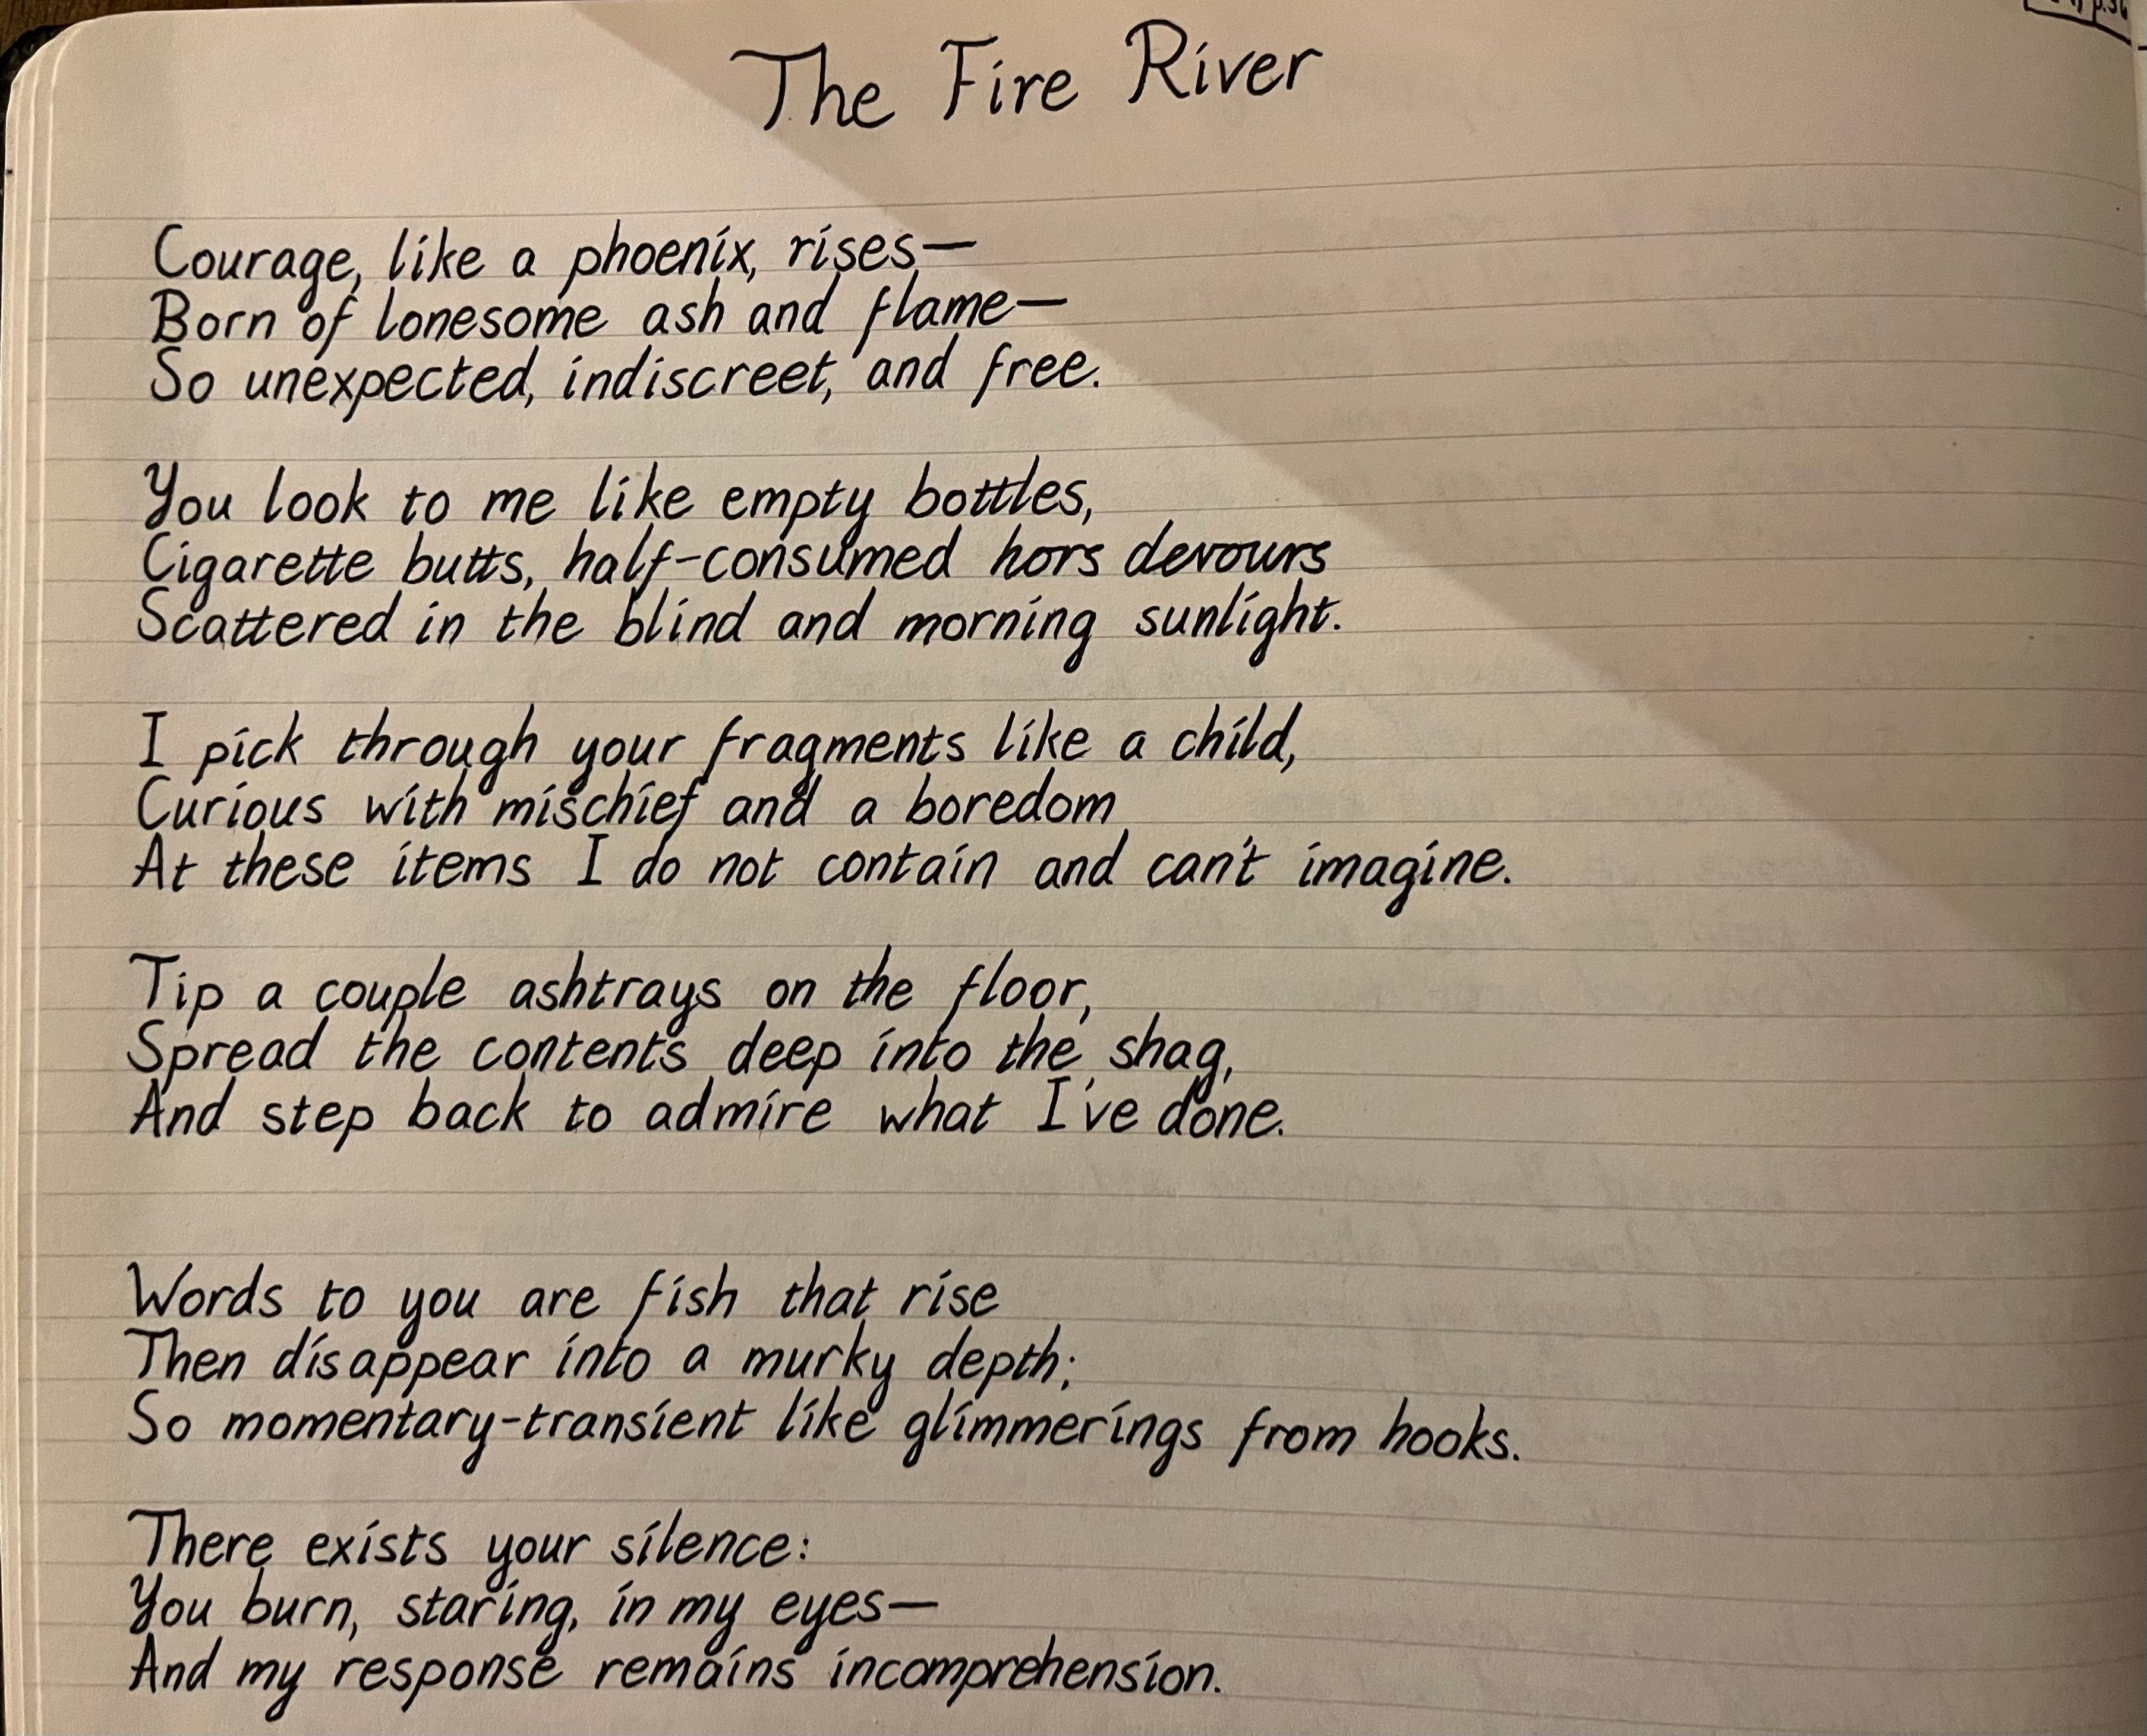 p.36
The Fire River
Courage, like a phoenix, rises—
Born of lonesome ash and flame—
So unexpected, indiscreet, and free.
You look to me like empty bottles,
Cigarette butts, half-consumed hors devours
Scattered in the blind and morning sunlight.
I pick through your fragments like a child,
Curious with mischief and a boredom
At these items I do not contain and can't imagine.
Tip a couple ashtrays on the floor,
Spread the contents deep into the shag,
And step back to admire what I've done.
Words to you are fish that rise
Then disappear into a murky depth;
So momentary-transient like glimmerings from hooks.
There exists your silence:
You burn, staring, in my eyes—
And my response remains incomprehension.